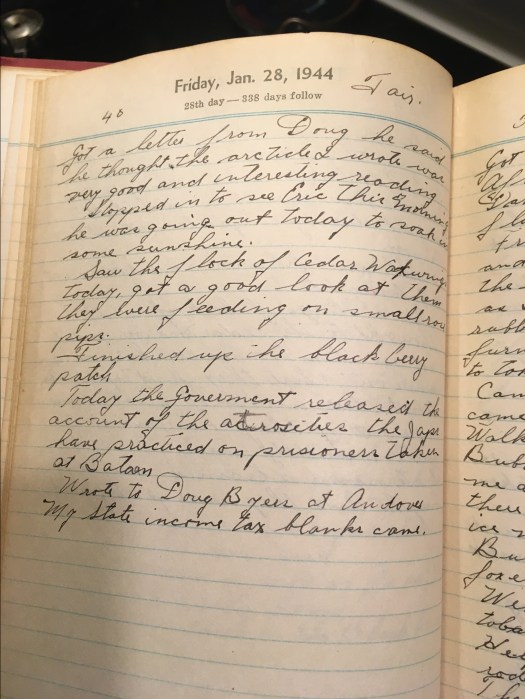 Friday, Jan. 28, 1944
28th day — 338 days follow
Fair.
40
Got a letter from Doug he said
he thought the arcticle I wrote was
very good and interesting reading
Stopped in to see Eric this morning
he was going out today to soak in
some sunshine.
Saw the flock of Cedar Waxwing
today, got a good look at them
they were feeding on small rose
pips.
Finished up the black berry
patch
Today the Goverment released the
account of the atrosities the Japs
have practiced on prisioners taken
at Bataan
Wrote to Doug Byers at Andover
My State income tax blanks came.
Got
and
the
as
to
Cam
came
Walk
Bub
me a
there
ice
Bu
We